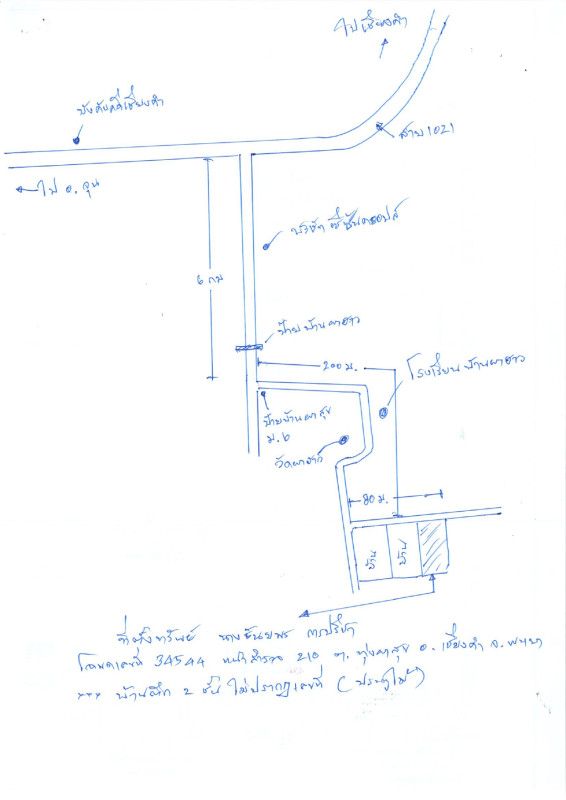 ไปเชียงคำ
บังคับคดีเชียงคำ
สาย 1021
ไป อ. จุน
บริษัท ซีพี
6 กม
ป้ายบ้านผาฮาว
200 ม.
โรงเรียนบ้านผาฮาว
ป้ายบ้านผาสุข
ม. ๖
วัดผาฮาว
80 ม.
บ้าน
บ้าน
ที่ตั้งทรัพย์ นาง
โฉนดเลขที่ 34544 หน้าสำรวจ 210 ต. ทุ่งผาสุข อ. เชียงคำ จ. พะเยา
*** บ้านตึก 2 ชั้น ไม่ปรากฏเลขที่ (